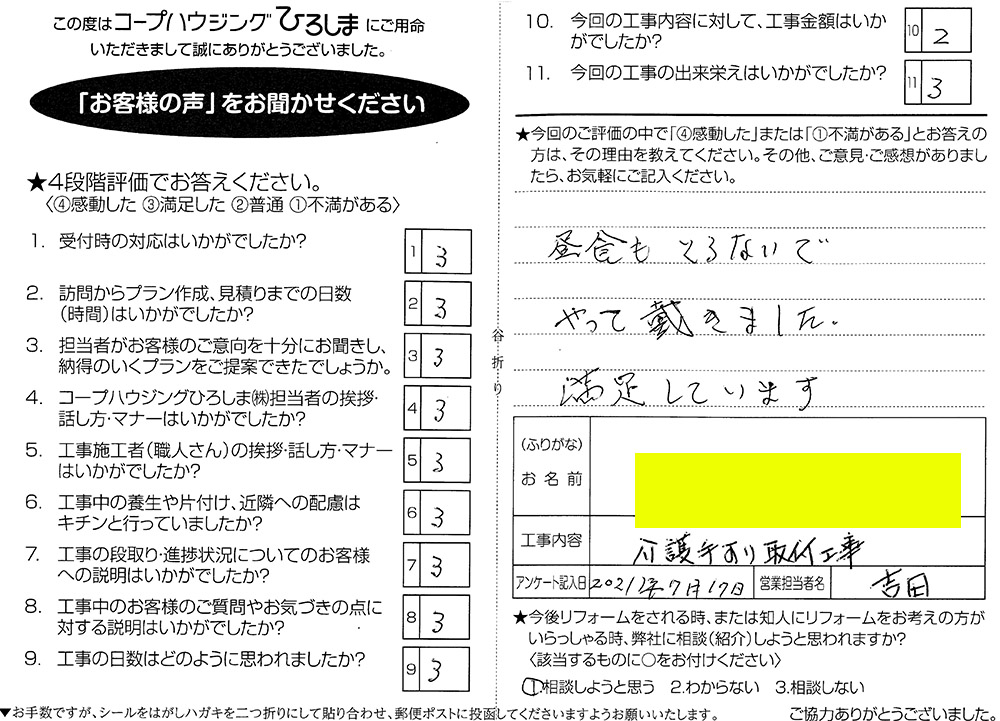 この度はコープハウジングひろしまにご用命
いただきまして誠にありがとうございました。
「お客様の声」をお聞かせください
★4段階評価でお答えください。
〈④感動した ③満足した ②普通 ①不満がある〉
1. 受付時の対応はいかがでしたか?
1 3
2. 訪問からプラン作成、見積りまでの日数
（時間）はいかがでしたか?
2 3
3. 担当者がお客様のご意向を十分にお聞きし、
納得のいくプランをご提案できたでしょうか。
3 3
4. コープハウジングひろしま㈱担当者の挨拶・
話し方・マナーはいかがでしたか?
4 3
5. 工事施工者（職人さん）の挨拶・話し方・マナー
はいかがでしたか?
5 3
6. 工事中の養生や片付け、近隣への配慮は
キチンと行っていましたか?
6 3
7. 工事の段取り・進捗状況についてのお客様
への説明はいかがでしたか?
7 3
8. 工事中のお客様のご質問やお気づきの点に
対する説明はいかがでしたか?
8 3
9. 工事の日数はどのように思われましたか?
9 3
▼お手数ですが、シールをはがしハガキを二つ折りにして貼り合わせ、郵便ポストに投函してくださいますようお願いいたします。
谷折り
10. 今回の工事内容に対して、工事金額はいか
がでしたか?
10 2
11. 今回の工事の出来栄えはいかがでしたか?
11 3
★今回のご評価の中で「④感動した」または「①不満がある」とお答えの
方は、その理由を教えてください。その他、ご意見・ご感想がありまし
たら、お気軽にご記入ください。
昼食もとらないで
やって戴きました.
満足しています
（ふりがな）
お名前
工事内容 介護手すり取付工事
アンケート記入日 2021年7月17日 営業担当者名 吉田
★今後リフォームをされる時、または知人にリフォームをお考えの方が
いらっしゃる時、弊社に相談（紹介）しようと思われますか?
〈該当するものに○をお付けください〉
1.相談しようと思う 2.わからない 3.相談しない
ご協力ありがとうございました。